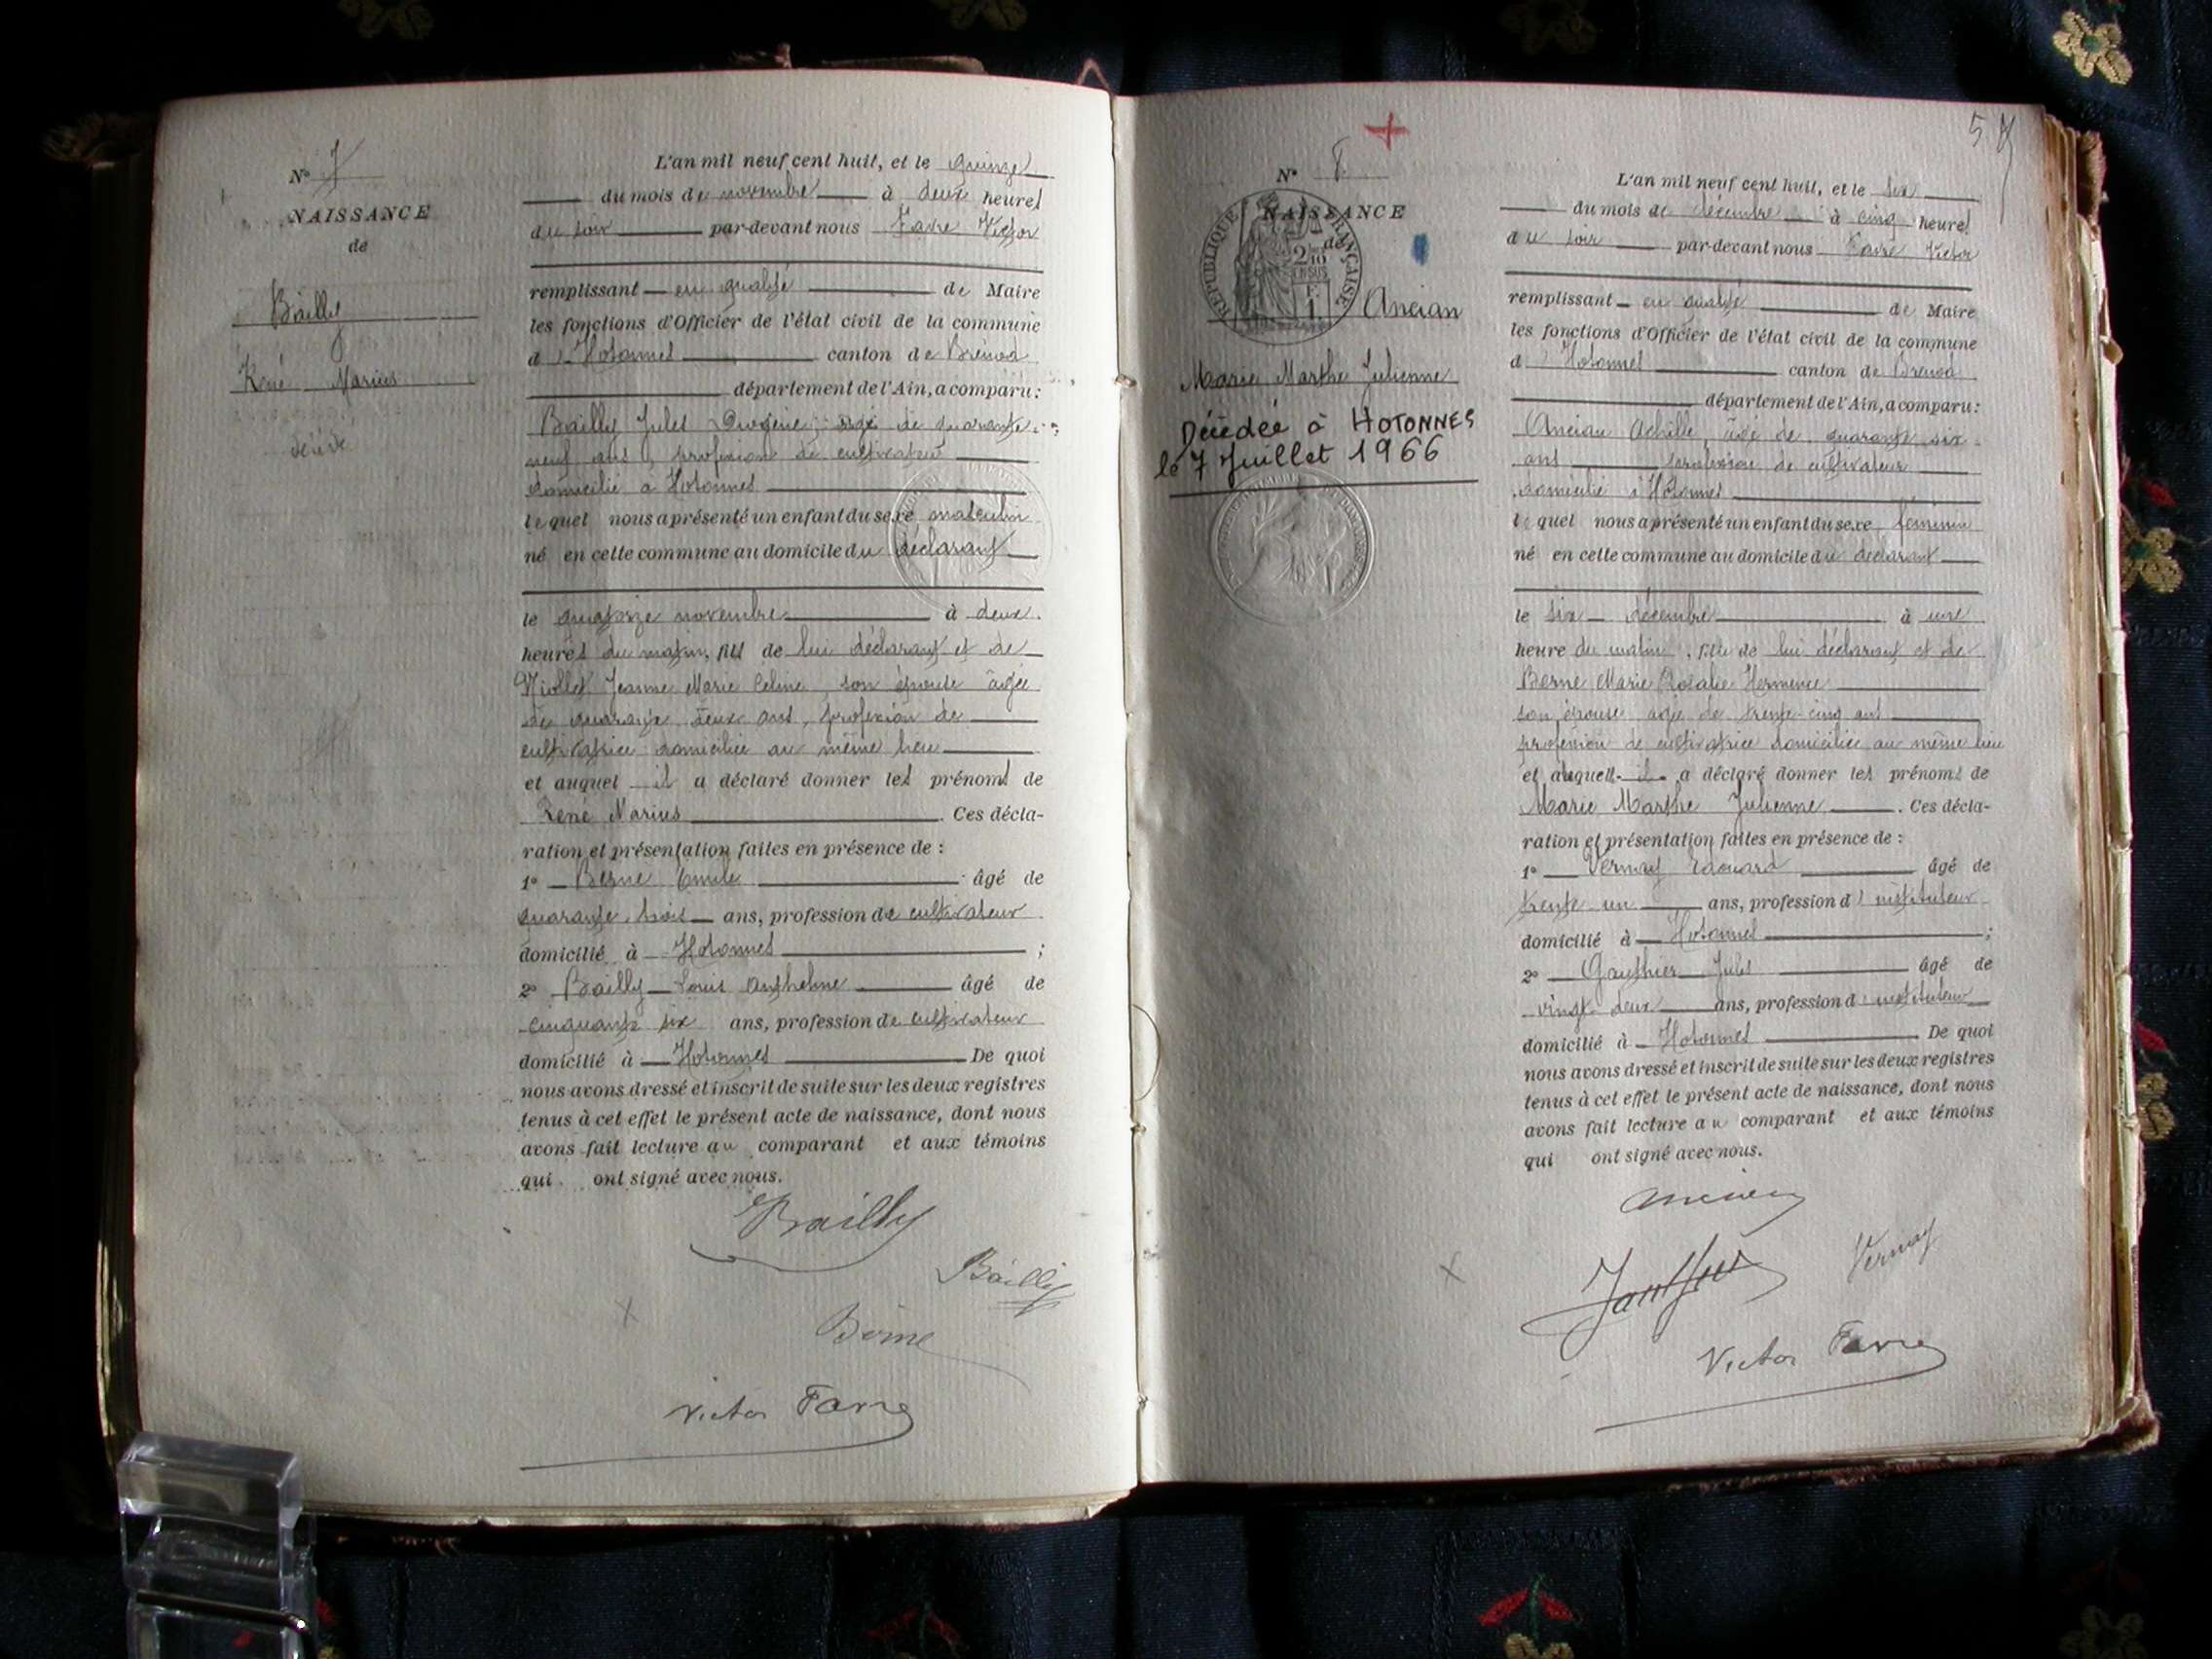 N° 7
NAISSANCE
de
Bailly
René Marius
décédé
L'an mil neuf cent huit, et le quinze
du mois de novembre à deux heures
du soir par-devant nous Favre Victor
remplissant en qualité de Maire
les fonctions d'Officier de l'état civil de la commune
d'Hotonnes canton de Brénod
département de l'Ain, a comparu :
Bailly Jules Diogène, âgé de quarante-
neuf ans, profession de cultivateur
domicilié à Hotonnes
lequel nous a présenté un enfant du sexe masculin
né en cette commune au domicile du déclarant
le quatorze novembre à deux
heures du matin, fils de lui déclarant et de
Niollet Jeanne Marie Céline, son épouse âgée
de quarante deux ans, profession de
cultivatrice domiciliée au même lieu
et auquel il a déclaré donner les prénoms de
René Marius. Ces décla-
ration et présentation faites en présence de :
1° Berne Emile âgé de
quarante trois ans, profession de cultivateur
domicilié à Hotonnes ;
2° Bailly Louis Anthelme âgé de
cinquante six ans, profession de cultivateur
domicilié à Hotonnes De quoi
nous avons dressé et inscrit de suite sur les deux registres
tenus à cet effet le présent acte de naissance, dont nous
avons fait lecture au comparant et aux témoins
qui ont signé avec nous.
Bailly
Bailly
Berne
Victor Favre
5
N° 8
NAISSANCE
de
RÉPUBLIQUE FRANÇAISE
2/10 EN SUS
F. 1.
Ancian
Marie Marthe Julienne
Décédée à HOTONNES
le 7 Juillet 1966
L'an mil neuf cent huit, et le six
du mois de décembre à cinq heures
du soir par-devant nous Favre Victor
remplissant en qualité de Maire
les fonctions d'Officier de l'état civil de la commune
d'Hotonnes canton de Brénod
département de l'Ain, a comparu :
Ancian Achille, âgé de quarante six
ans profession de cultivateur
domicilié à Hotonnes
lequel nous a présenté un enfant du sexe féminin
né en cette commune au domicile du déclarant
le six décembre à une
heure du matin, fille de lui déclarant et de
Berne Marie Rosalie Hermence
son épouse âgée de trente-cinq ans
profession de cultivatrice domiciliée au même lieu
et auquel il a déclaré donner les prénoms de
Marie Marthe Julienne. Ces décla-
ration et présentation faites en présence de :
1° Vernay Edouard âgé de
trente un ans, profession d'instituteur
domicilié à Hotonnes ;
2° Gauthier Jules âgé de
vingt deux ans, profession d'instituteur
domicilié à Hotonnes De quoi
nous avons dressé et inscrit de suite sur les deux registres
tenus à cet effet le présent acte de naissance, dont nous
avons fait lecture au comparant et aux témoins
qui ont signé avec nous.
Ancian
Vernay
Gauthier
Victor Favre